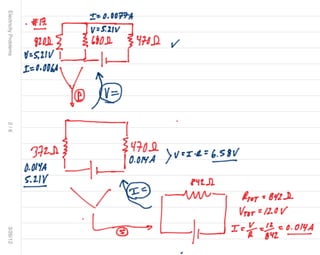 Electricity Problems
2 / 4
3/29/12
#12
I = 0.0077A
V=5.21V
820Ω
680Ω
470Ω
V=5.21V
I=0.006A
P
V=
372Ω
470Ω
0.014A
0.014A
V=I·R = 6.58V
5.21V
I=
842Ω
S
R_TOT = 842Ω
V_TOT = 12.0V
I = V/R = 12/842 = 0.014A